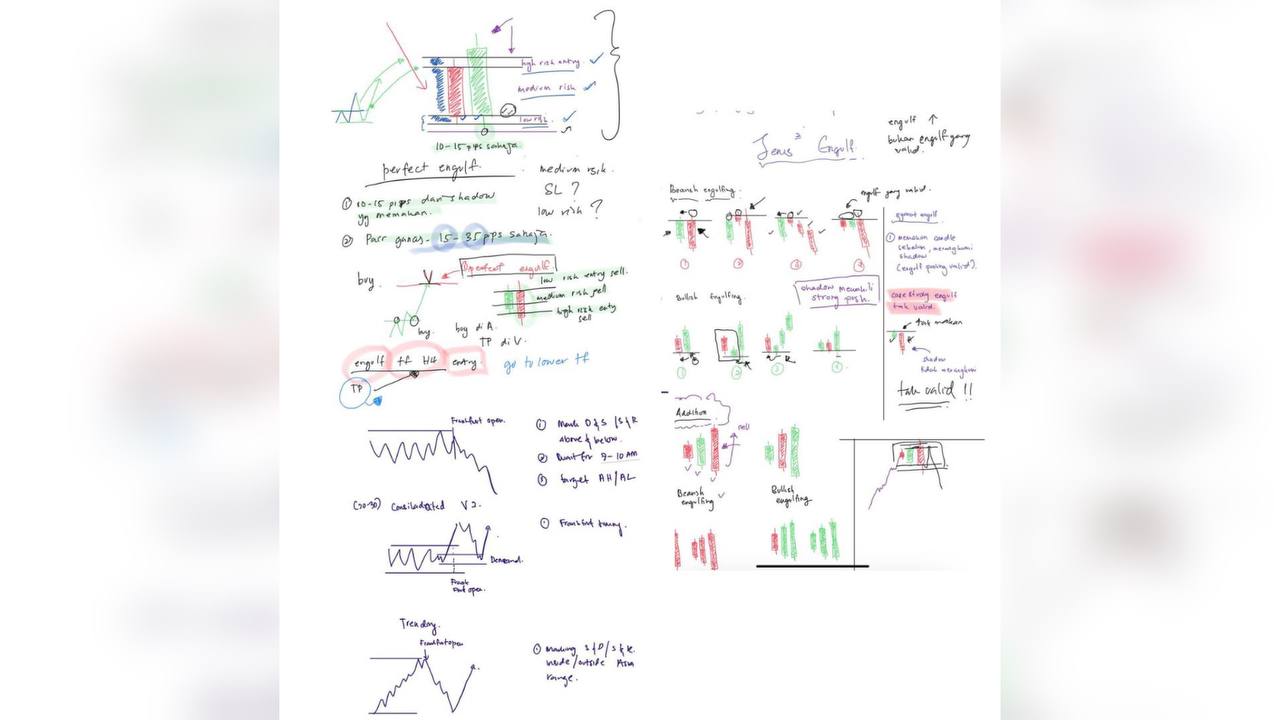 high risk entry
medium risk
low risk
10-15 pips sahaja
perfect engulf.
① 10-15 pips dari shadow
yg memakan.
② Pair ganas - 15-35 pips sahaja.
medium risk.
SL ?
low risk ?
buy.
engulf
low risk entry sell.
medium risk sell
high risk entry
sell
buy.
buy di A.
TP di V.
engulf tf H4 entry
go to lower tf
TP
Frankfurt open.
① Mark D & S / S & R
above & below.
② Wait for 9-10 AM
③ target AH/AL
(20-30) V2.
① Frankfurt timing.
Demand.
Frank
furt open.
Trending.
Frankfurt open
① Marking S & D / S & R.
inside/outside Asia
range.
engulf ↑
bukan engulf yang
valid.
Jenis² Engulf.
Bearish engulfing.
engulf yang valid.
① ② ③ ④
shadow mewakili
strong push.
Bullish Engulfing.
① ② ③ ④
syarat engulf
① memakan candle
sebelum, merangkumi
shadow
(engulf paling valid).
engulf
tak valid.
makan
shadow
tidak merangkumi
tak valid !!
Addition
Bearish
engulfing
Bullish
engulfing